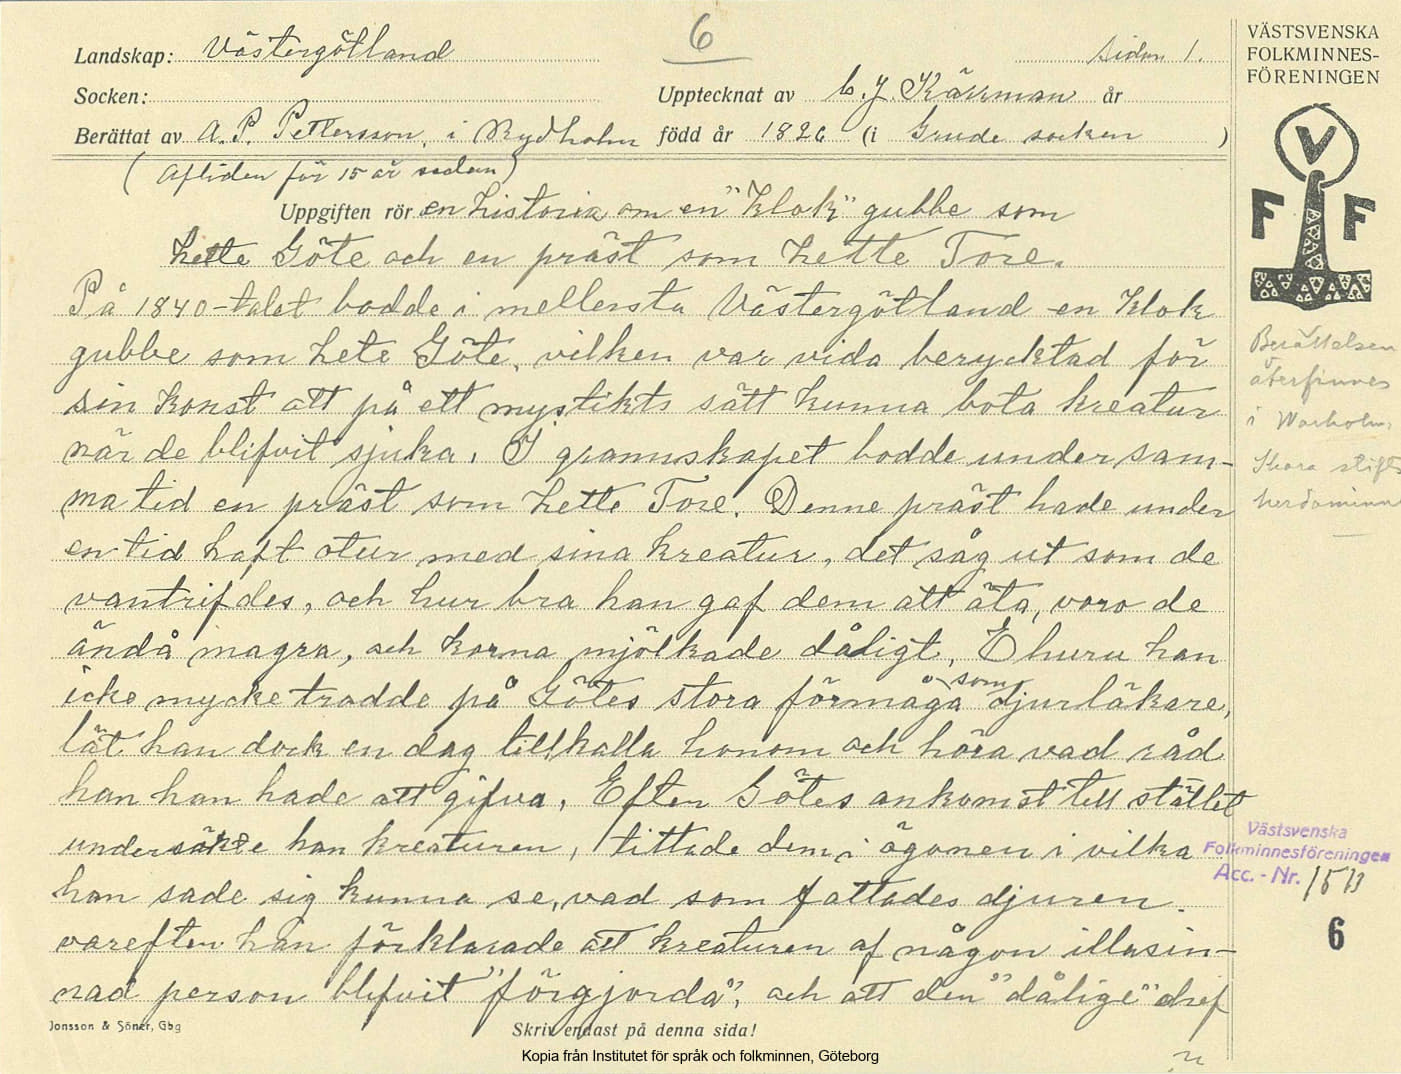 6
Landskap: Västergötland
Sidan 1.
Socken:
Upptecknat av C. J. Käkman år
Berättat av A. P. Pettersson, i Rydholm född år 1826 (i Grude socken )
(Afliden för 15 år sedan)
Uppgiften rör en historia om en "klok" gubbe som
hette Göte och en präst som hette Tore.
På 1840-talet bodde i mellersta Västergötland en klok
gubbe som hete Göte, vilken var vida beryktad för
sin konst att på ett mystikts sätt kunna bota kreatur
när de blifvit sjuka. I grannskapet bodde under sam-
ma tid en präst som hette Tore. Denne präst hade under
en tid haft otur med sina kreatur, det såg ut som de
vantrifdes, och hur bra han gaf dem att äta, voro de
ändå magra, och korna mjölkade dåligt. Ehuru han
icke mycket trodde på Götes stora förmåga som djurläkare,
lät han dock en dag tillkalla honom och höra vad råd
han han hade att gifva. Efter Götes ankomst till stället
undersökte han kreaturen, tittade dem i ögonen i vilka
han sade sig kunna se, vad som fattades djuren.
varefter han förklarade att kreaturen af någon illasin-
nad person blifvit "förgjorda", och att den "dålige" dref
Jonsson & Söner, Gbg
Skriv endast på denna sida!
Kopia från Institutet för språk och folkminnen, Göteborg
VÄSTSVENSKA
FOLKMINNES-
FÖRENINGEN
V
F F
Berättelsen
återfinnes
i Warholm,
Skara stifts
herdaminne
Västsvenska
Folkminnesföreningen
Acc. - Nr. 1513
6